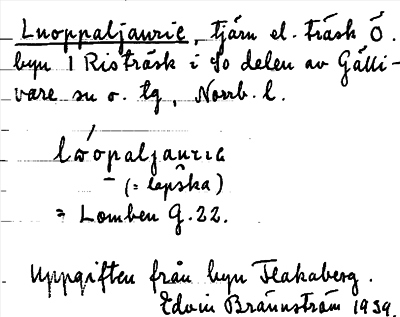 Luoppaljaurie, tjärn el. träsk Ö.
byn 1 Risträsk i So delen av Gälli-
vare sn o. tg, Norrb. l.
lωopaljauria
(= lapska)
= Lomben G.22.
Uppgiften från byn Flakaberg.
Edvin Brännström 1939.